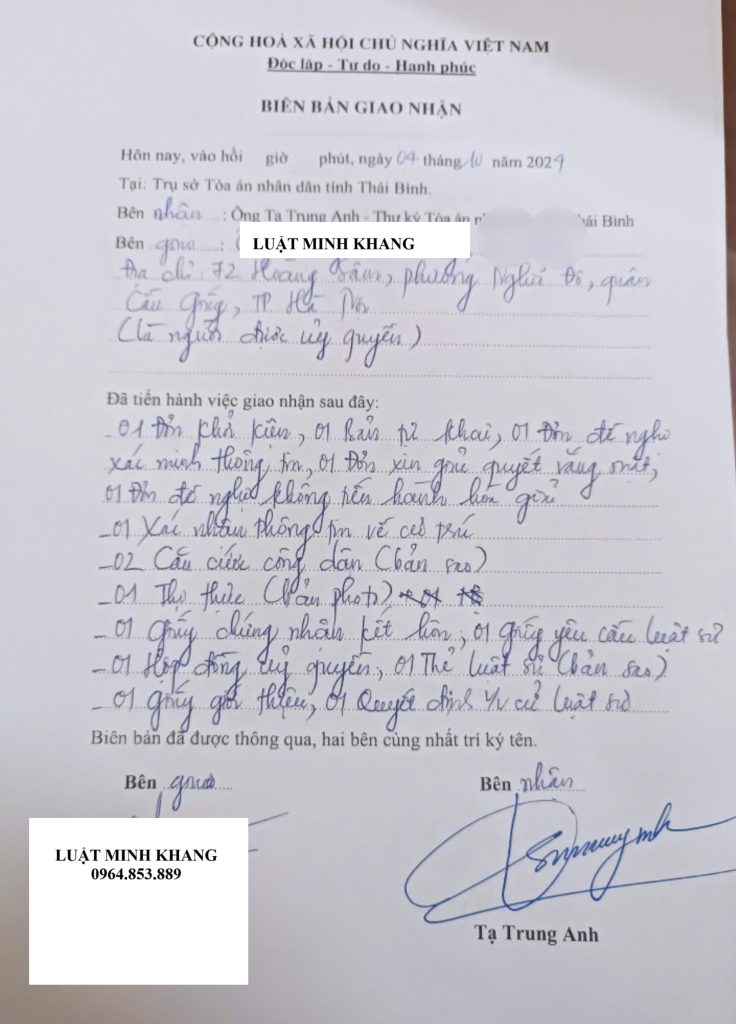 CỘNG HOÀ XÃ HỘI CHỦ NGHĨA VIỆT NAM
Độc lập - Tự do - Hạnh phúc
BIÊN BẢN GIAO NHẬN
Hôn nay, vào hồi giờ phút, ngày 04 tháng 10 năm 2024
Tại: Trụ sở Tòa án nhân dân tỉnh Thái Bình.
Bên nhận : Ông Tạ Trung Anh - Thư ký Tòa án Thái Bình
Bên giao : LUẬT MINH KHANG
Địa chỉ 72 Hoàng Sâm, phường Nghĩa Đô, quận
Cầu Giấy, TP Hà Nội
(là người được uỷ quyền)
Đã tiến hành việc giao nhận sau đây:
- 01 Đơn khởi kiện, 01 Bản tự khai, 01 Đơn đề nghị
xác minh thông tin, 01 Đơn xin giải quyết vắng mặt,
01 Đơn đề nghị không tiến hành hòa giải
- 01 Xác nhận thông tin về cư trú
- 02 Căn cước công dân (bản sao)
- 01 Thị thực (bản photo)
- 01 Giấy chứng nhận kết hôn, 01 giấy yêu cầu luật sư
- 01 Hợp đồng uỷ quyền, 01 Thẻ luật sư (bản sao)
- 01 Giấy giới thiệu, 01 Quyết định V/v cử luật sư
Biên bản đã được thông qua, hai bên cùng nhất trí ký tên.
Bên giao Bên nhận
LUẬT MINH KHANG
0964.853.889
Tạ Trung Anh